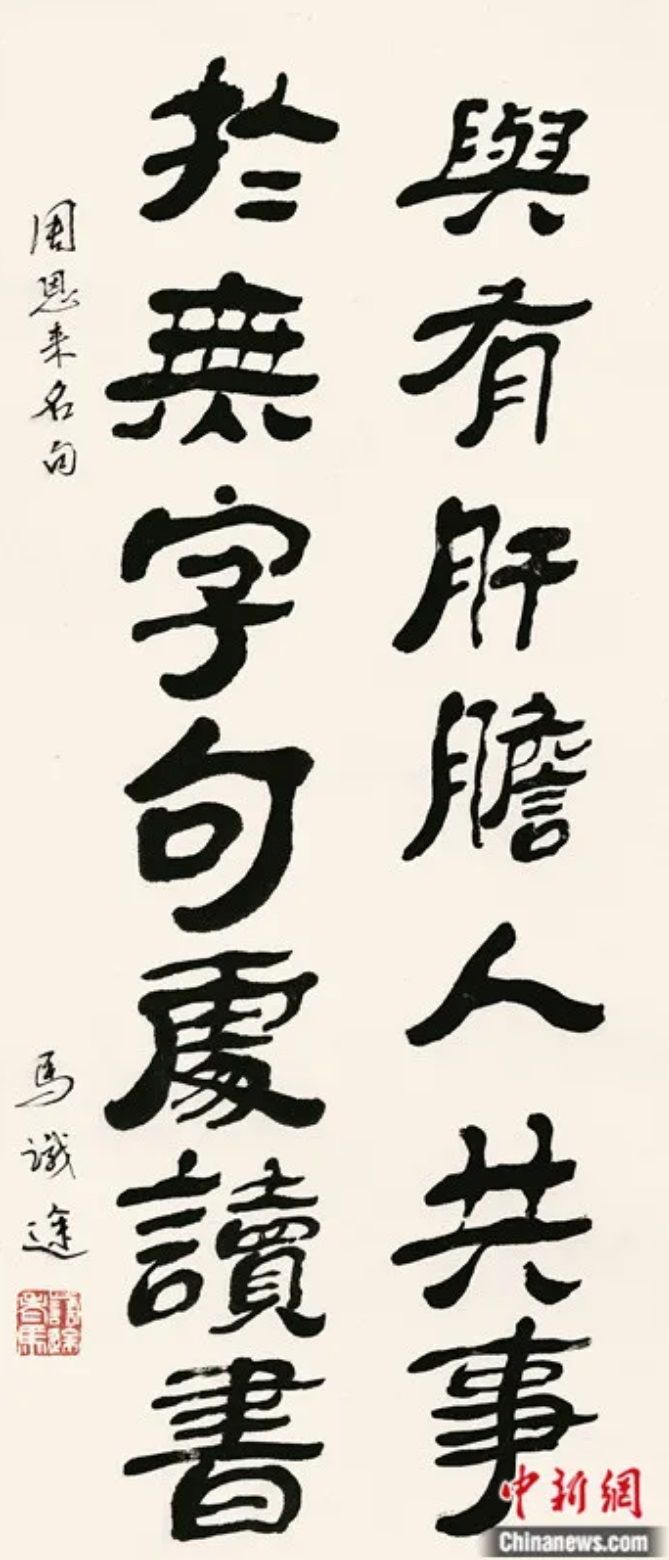 與有肝膽人共事
於無字句處讀書
周恩来名句
馬識途
中新網
Chinanews.com